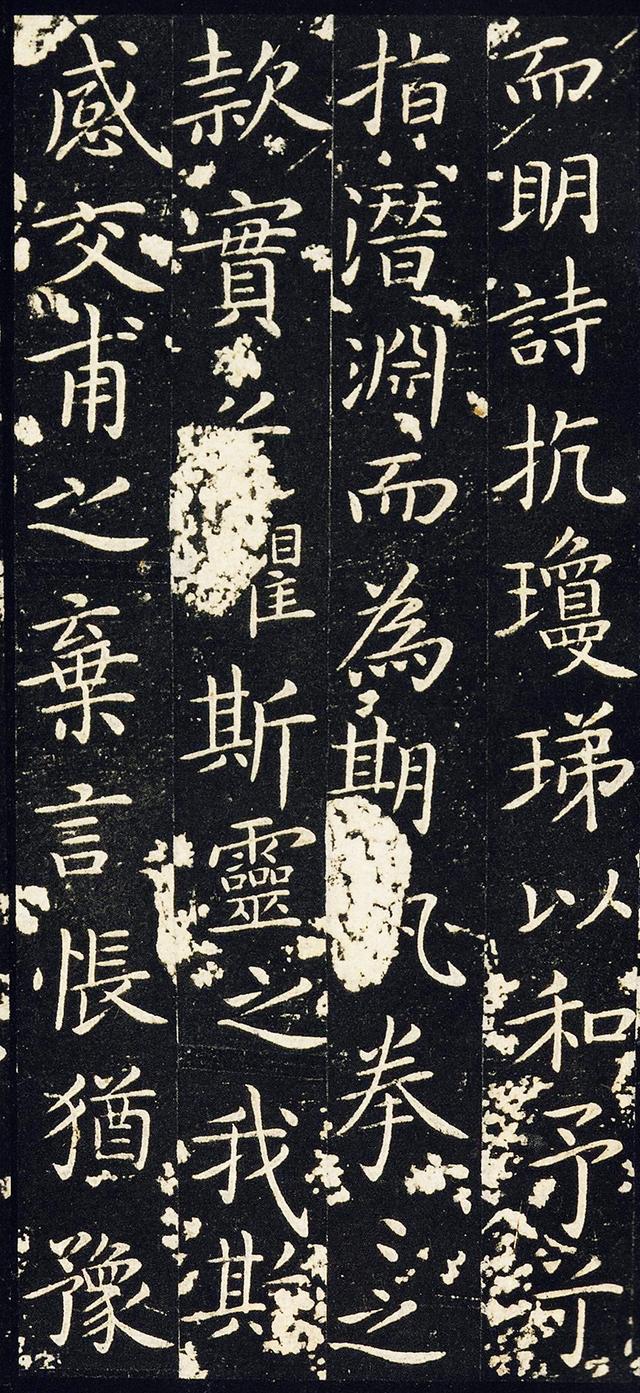 而明詩抗瓊珶以和予兮
指潛淵而為期執拳〻之
款實兮懼斯靈之我欺
感交甫之棄言悵猶豫